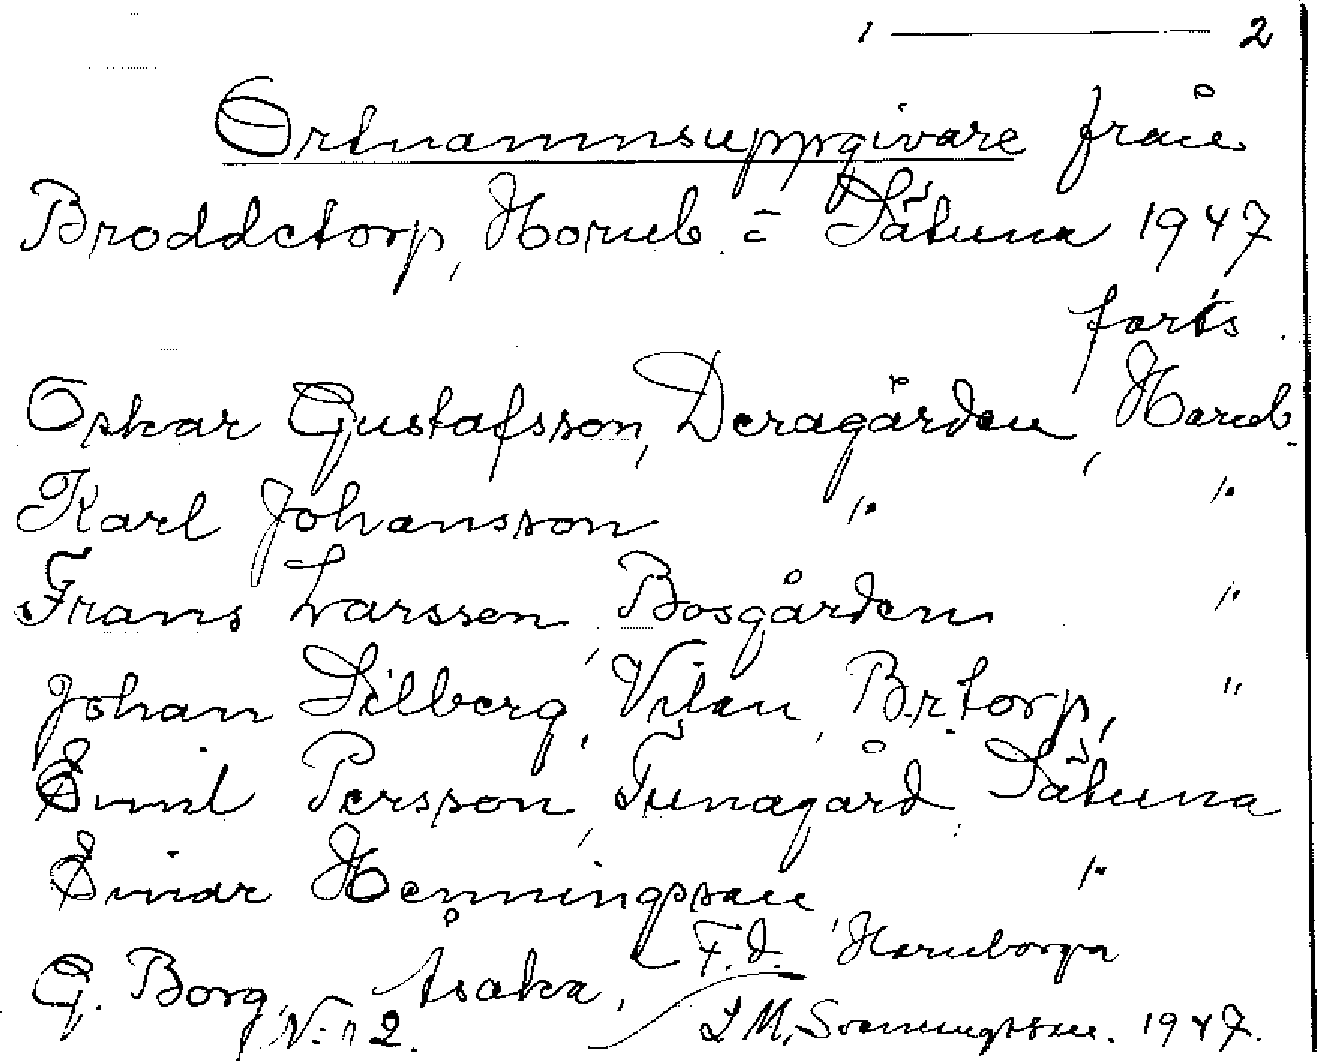 1 ——— 2
Ortnamnsuppgivare från
Broddetorp, Hornb. = Sätuna 1947
forts.
Oskar Gustafsson, Deragården, Hornb.
Karl Johansson " "
Frans Larsson, Bosgården "
Johan Silberg, Vilan, Br.torp, "
Emil Persson, Tunagård, Sätuna
Einar Henningsson, "
G. Borg, Åsaka, F.d. Hornborga
N:r 2. L M, Svenningsson. 1947.